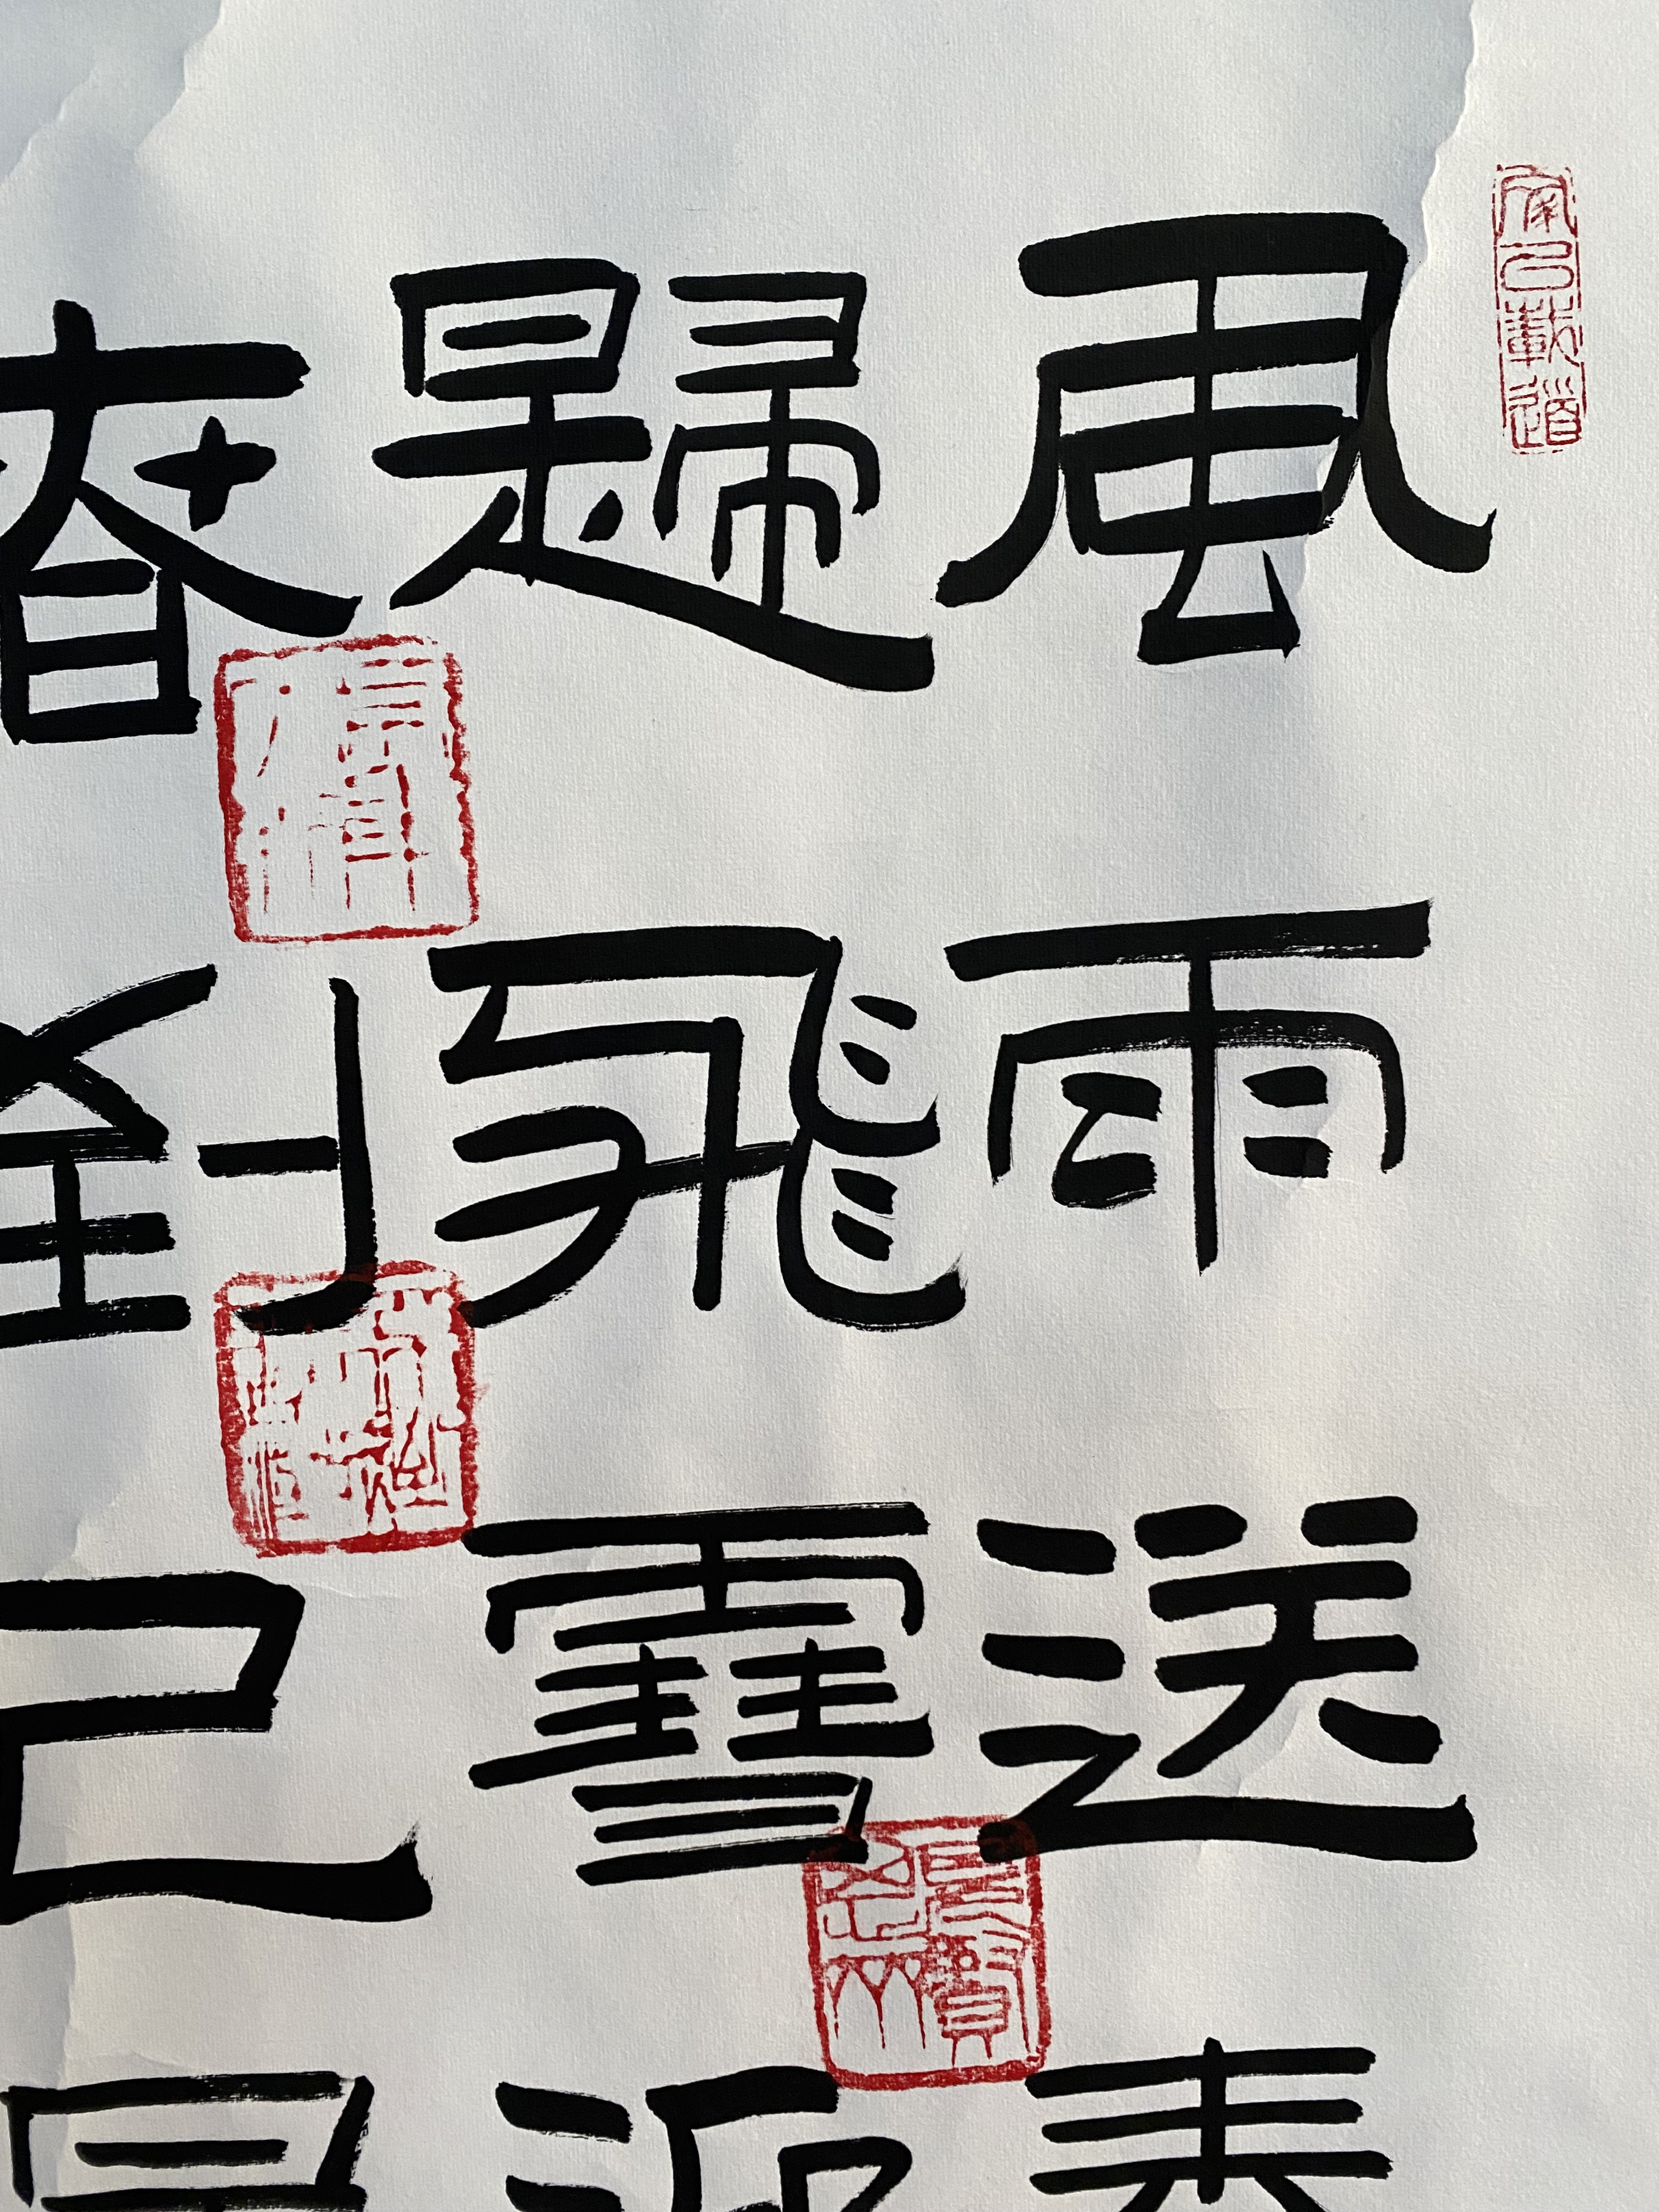 風雨送春
歸飛雪迎
春到已是